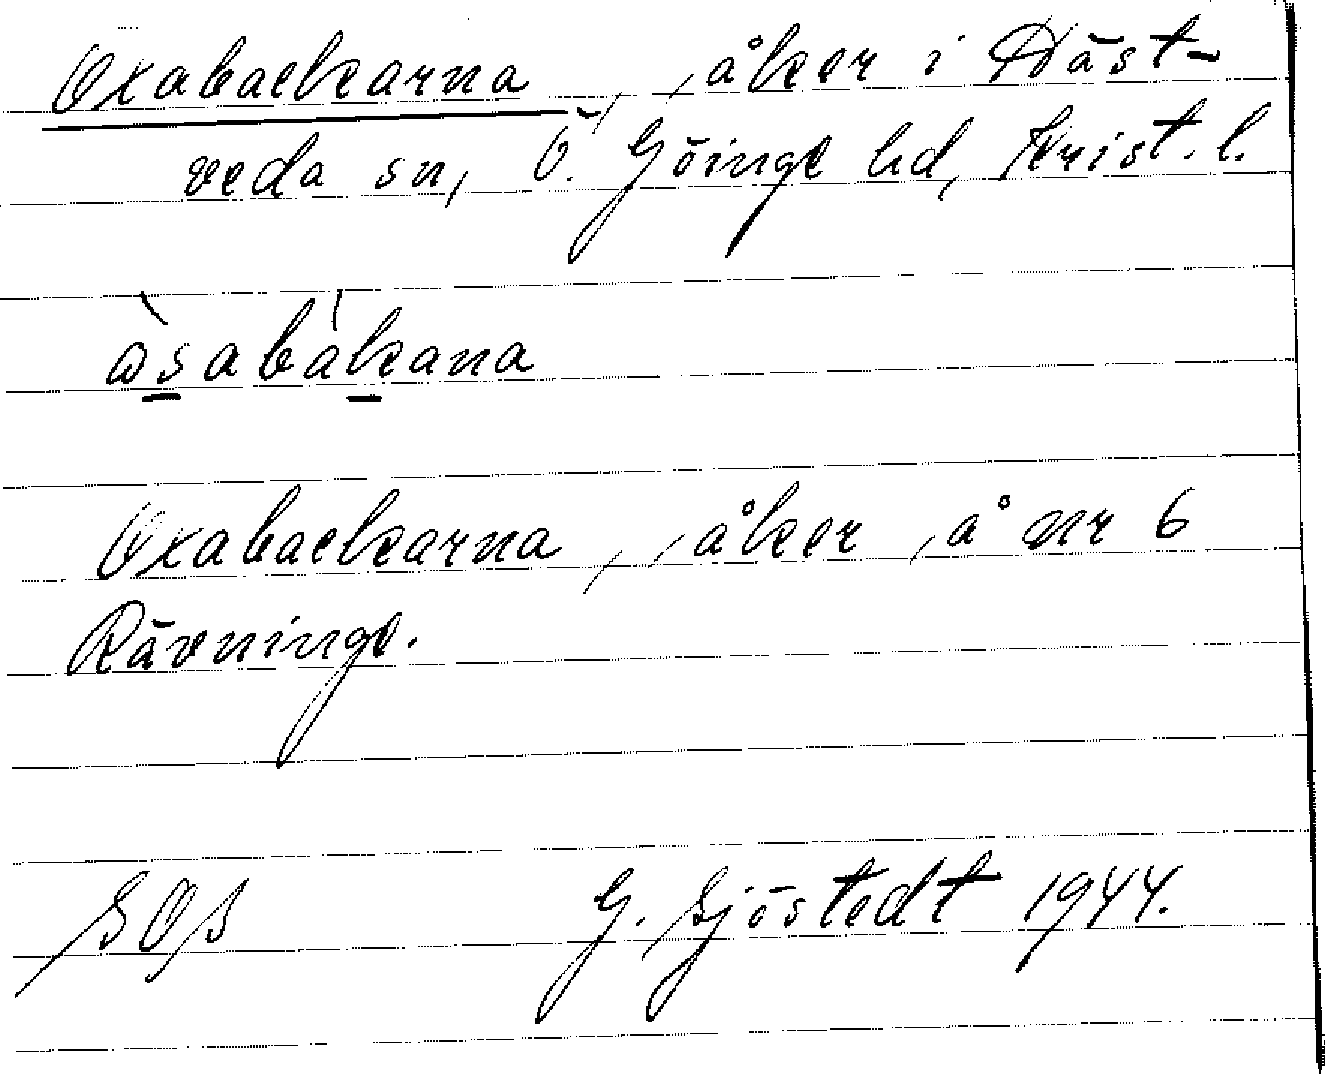 Oxabackarna, åker i Häst-
veda sn, Ö. Göinge hd, Krist. l.
àsabákana
Oxabackarna, åker, å nr 6
Rävninge.
SOS G. Sjöstedt 1944.